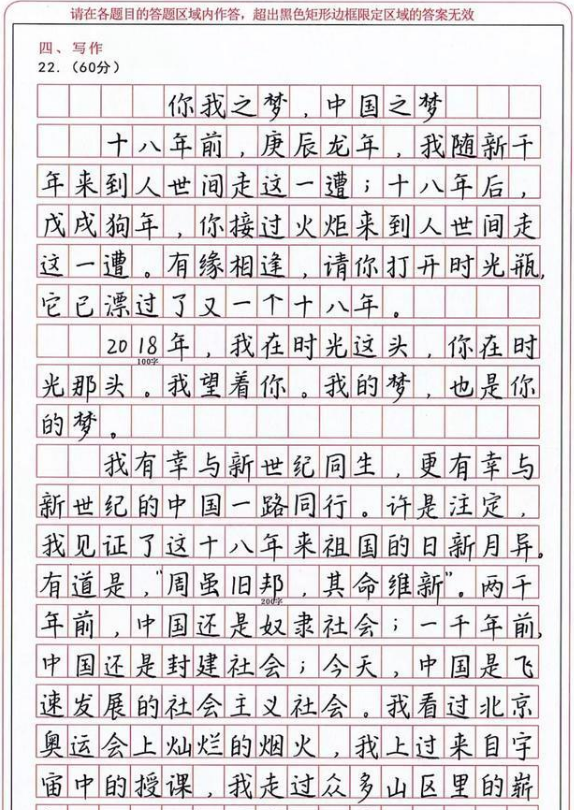 请在各题目的答题区域内作答，超出黑色矩形边框限定区域的答案无效
四、写作
22.（60分）
你我之梦，中国之梦
十八年前，庚辰龙年，我随新千
年来到人世间走这一遭；十八年后，
戊戌狗年，你接过火炬来到人世间走
这一遭。有缘相逢，请你打开时光瓶，
它已漂过了又一个十八年。
2018年，我在时光这头，你在时
100字
光那头。我望着你。我的梦，也是你
的梦。
我有幸与新世纪同生，更有幸与
新世纪的中国一路同行。许是注定，
我见证了这十八年来祖国的日新月异。
有道是，“周虽旧邦，其命维新”。两千
200字
年前，中国还是奴隶社会；一千年前，
中国还是封建社会；今天，中国是飞
速发展的社会主义社会。我看过北京
奥运会上灿烂的烟火，我上过来自宇
宙中的授课，我走过众多山区里的崭